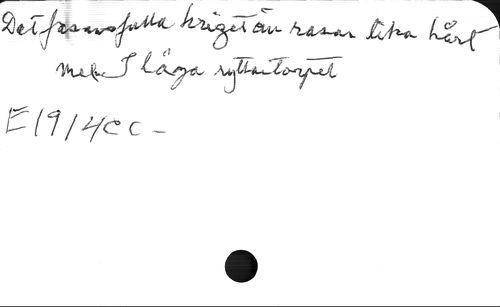 Det fasansfulla kriget än rasar lika hårt
mel. I låga ryttartorpet
E1914CC-